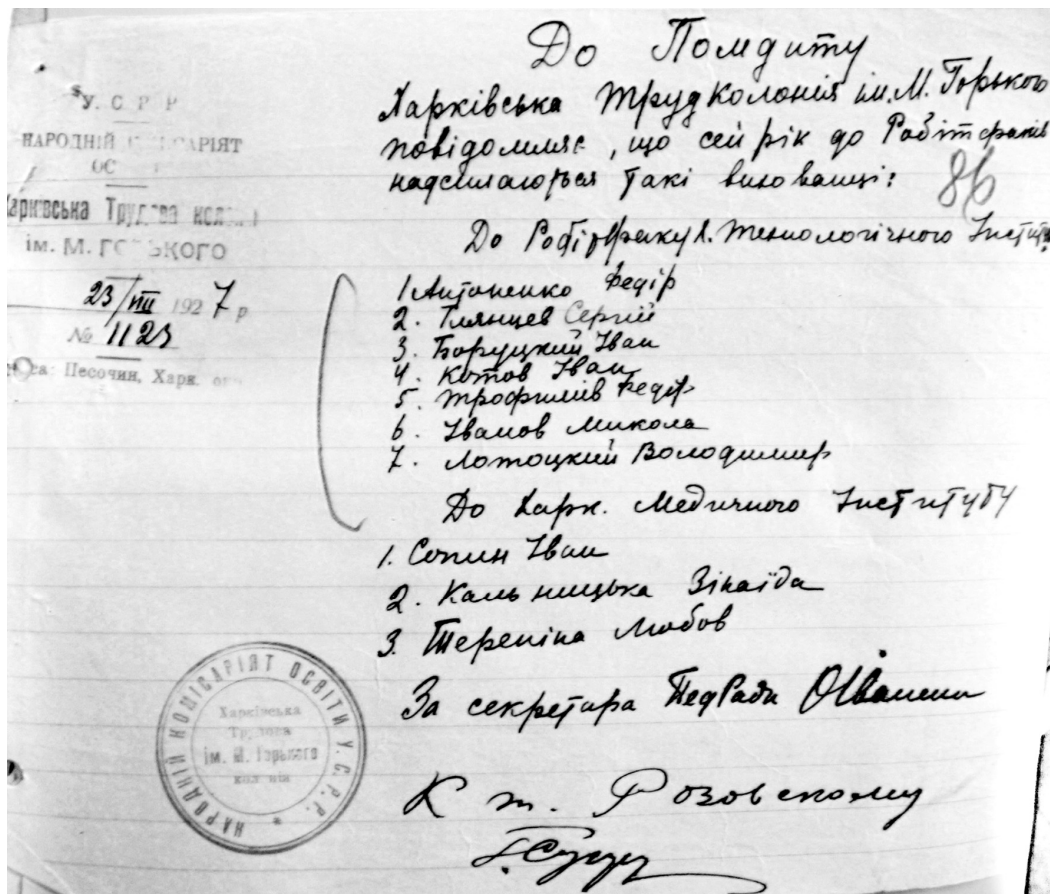 У. С. Р. Р.
НАРОДНІЙ КОМІСАРІЯТ
ОС
Харківська Трудова колонія
ім. М. ГОРЬКОГО
23/VIII 1927 р
№ 1123
Песочин, Харк.
До Помдиту
Харківська трудколонія ім. М. Горького
повідомляє, що сей рік до Робітфаків
надсилаються такі вихованці:
86
До Робітфаку Х. Технологічного Інститу
1 Антоненко Федір
2. Глянцев Сергій
3. Боруцкий Іван
4. Котов Іван
5. Трофимів Федір
6. Іванов Микола
7. Лотоцкий Володимир
До Харк. Медичного Інституту
1. Сопин Іван
2. Кальницька Зінаїда
3. Тереніна Любов
За секретара ПедРади
К т. Розовскому
НАРОДНІЙ КОМІСАРІЯТ ОСВІТИ У.С.Р.Р.
Харківська
Трудова
ім. М. Горького
колонія